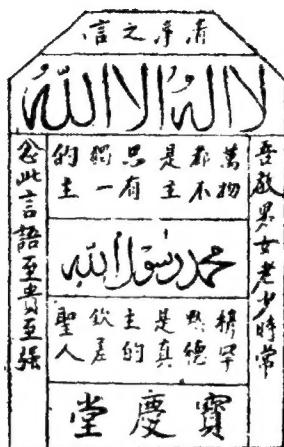 清淨之言
لا اله الا الله
吾教男女老少時常
萬物
都不
是主
只有
獨一
的主
محمد رسول الله
穆罕
默德
是真
主的
欽差
聖人
念此言語至貴至强
寶慶堂